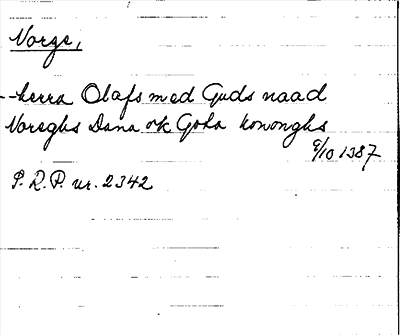 Norge,
- herra Olafs med Guds naad
Noreghs Dana ok Gota kononghs
9/10 1387
P. R. P. nr. 2342